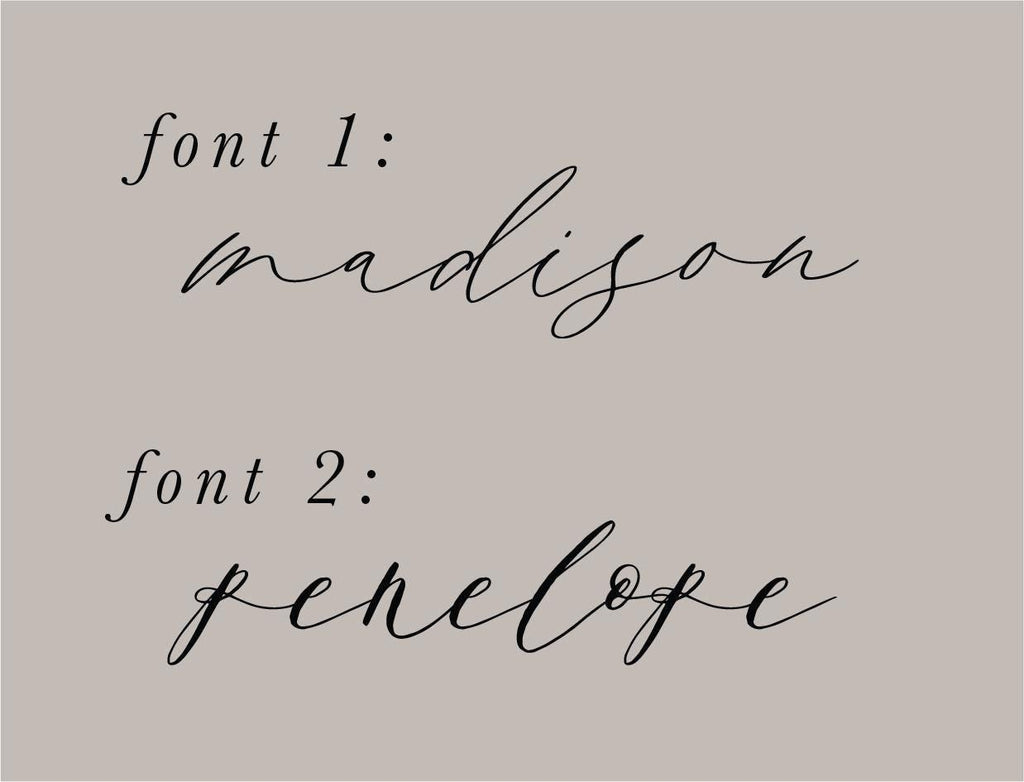 font 1:
madison
font 2:
penelope